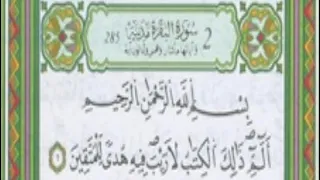 2 سورة البقرة مدنية 285
بِسْمِ اللَّهِ الرَّحْمَٰنِ الرَّحِيمِ
الٓمٓ ذَٰلِكَ الْكِتَٰبُ لَا رَيْبَ فِيهِ هُدًى لِّلْمُتَّقِينَ ١